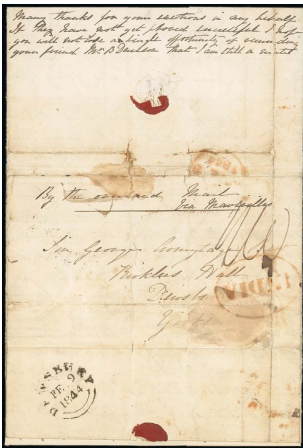 Many thanks for your exertions in my behalf
If they have not yet proved successful I hope
you will not lose a single opportunity of reminding
your friend Mr B that I am still a
By the overland Mail
Via Marseilles
Sir George
Hall
Dewsb
INDIA
DEWSBURY
FE 9
1844